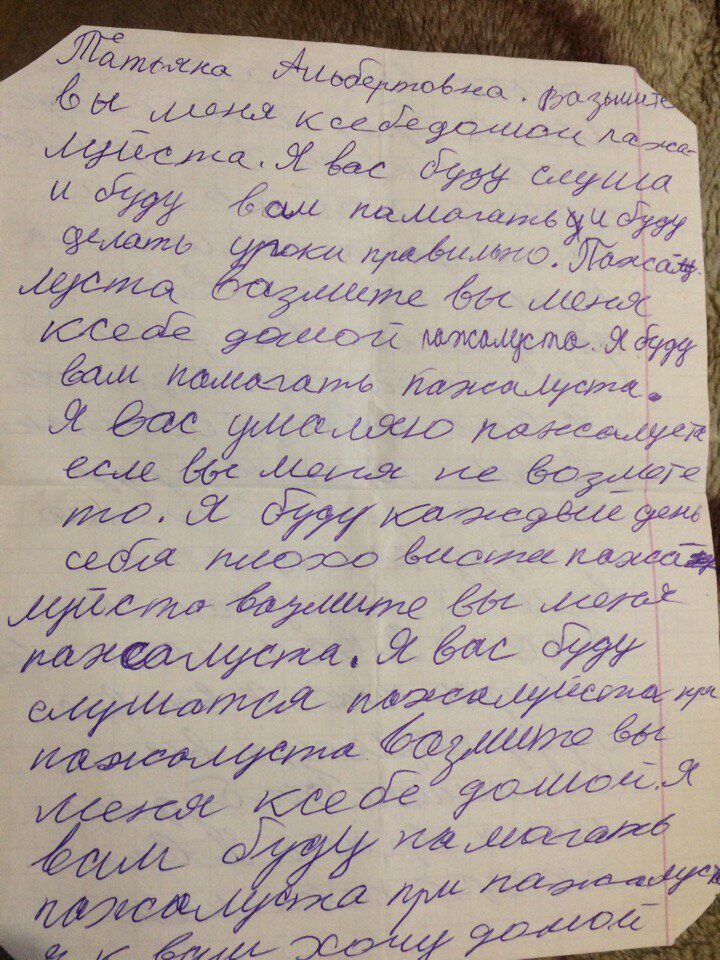 Татьяна Альбертовна. Вазьмите
вы меня ксебедомой пажа-
луйста. Я вас буду слуша
и буду вам памагать и буду
делать уроки правильно. Пажа
луста вазмите вы меня
ксебе домой пажалуста. Я буду
вам памагать пажалуста.
Я вас умаляю пажалуста
есле вы меня не возмете
то. Я буду каждый день
себя плохо виста пажа
луйста вазмите вы меня
пажалуста. Я вас буду
слушатся пажалуйста при
пажалуста вазмите вы
меня ксебе домой. Я
вам буду памагать
пажалуста при пажалуста
я к вам хочу домой